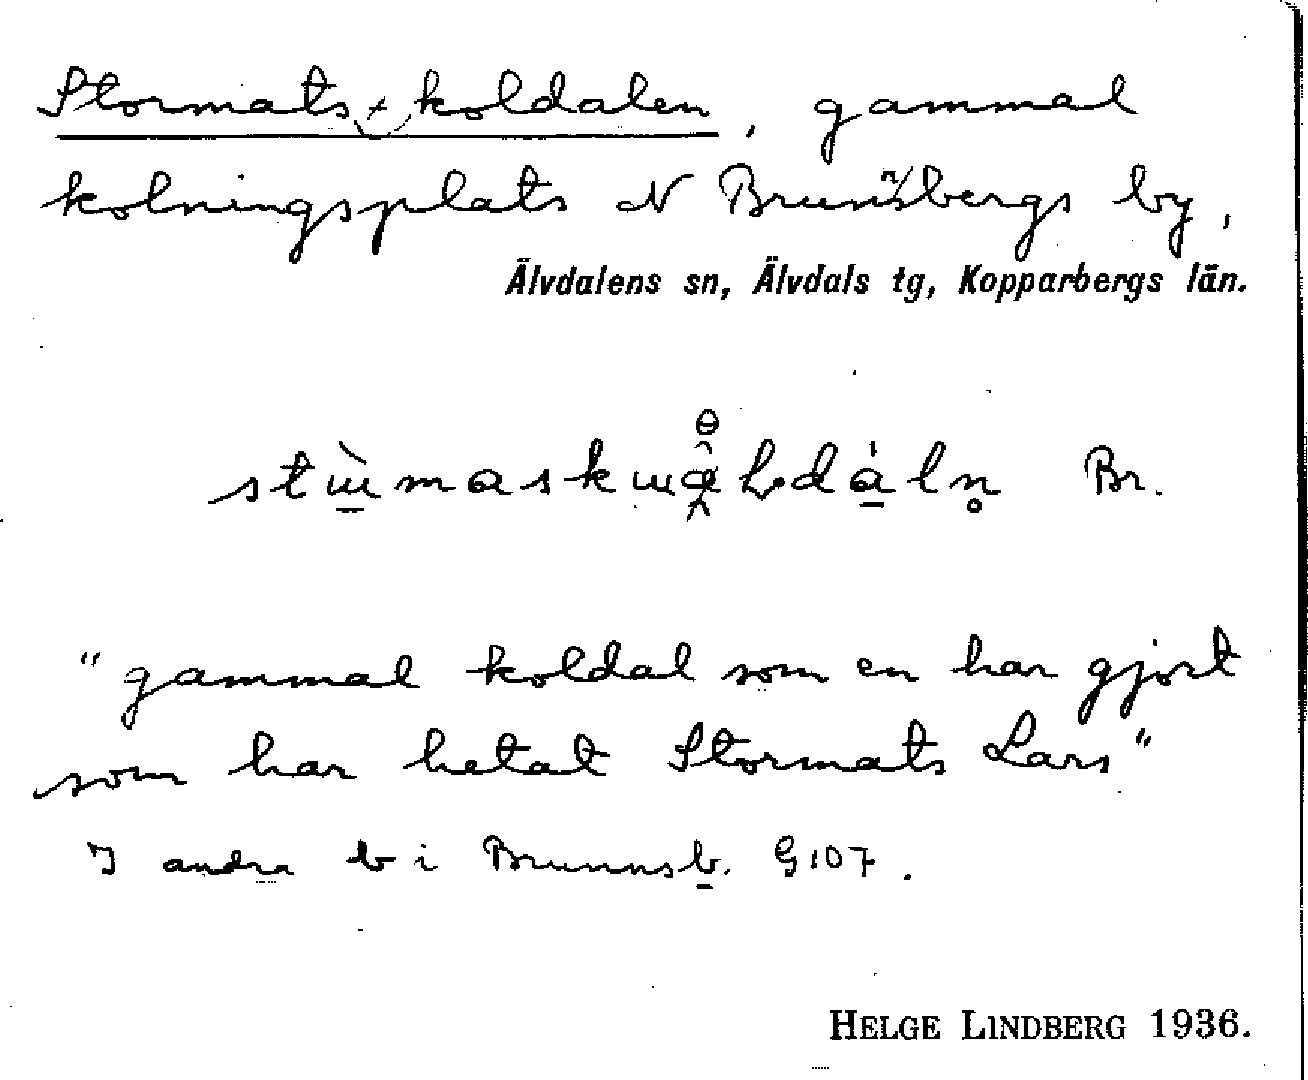 Stormats-koldalen, gammal
kolningsplats N Brunnsbergs by,
Älvdalens sn, Älvdals tg, Kopparbergs län.
Br.
"gammal koldal som en har gjort
som har hetat Stormats Lars"
I andra b i Brunnsb. G 107.
HELGE LINDBERG 1936.